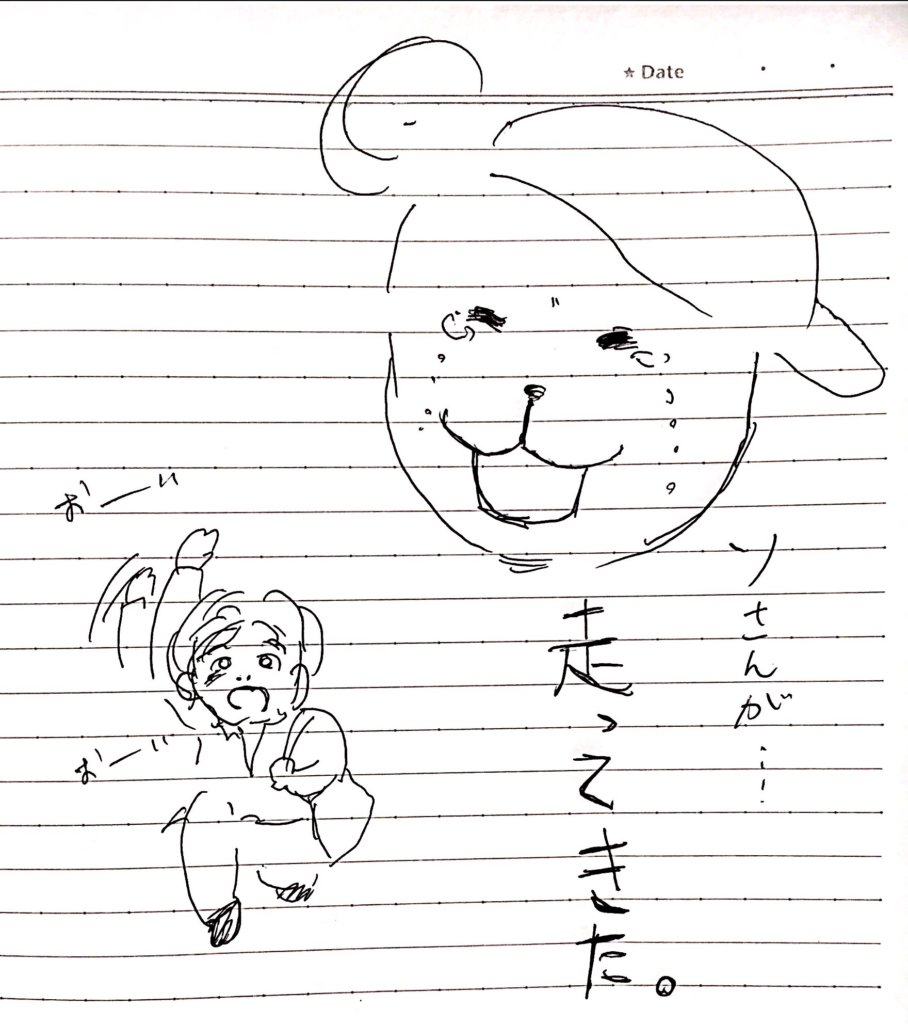 ☆ Date
おーい
ソさんが…
走ってきた。
おーい